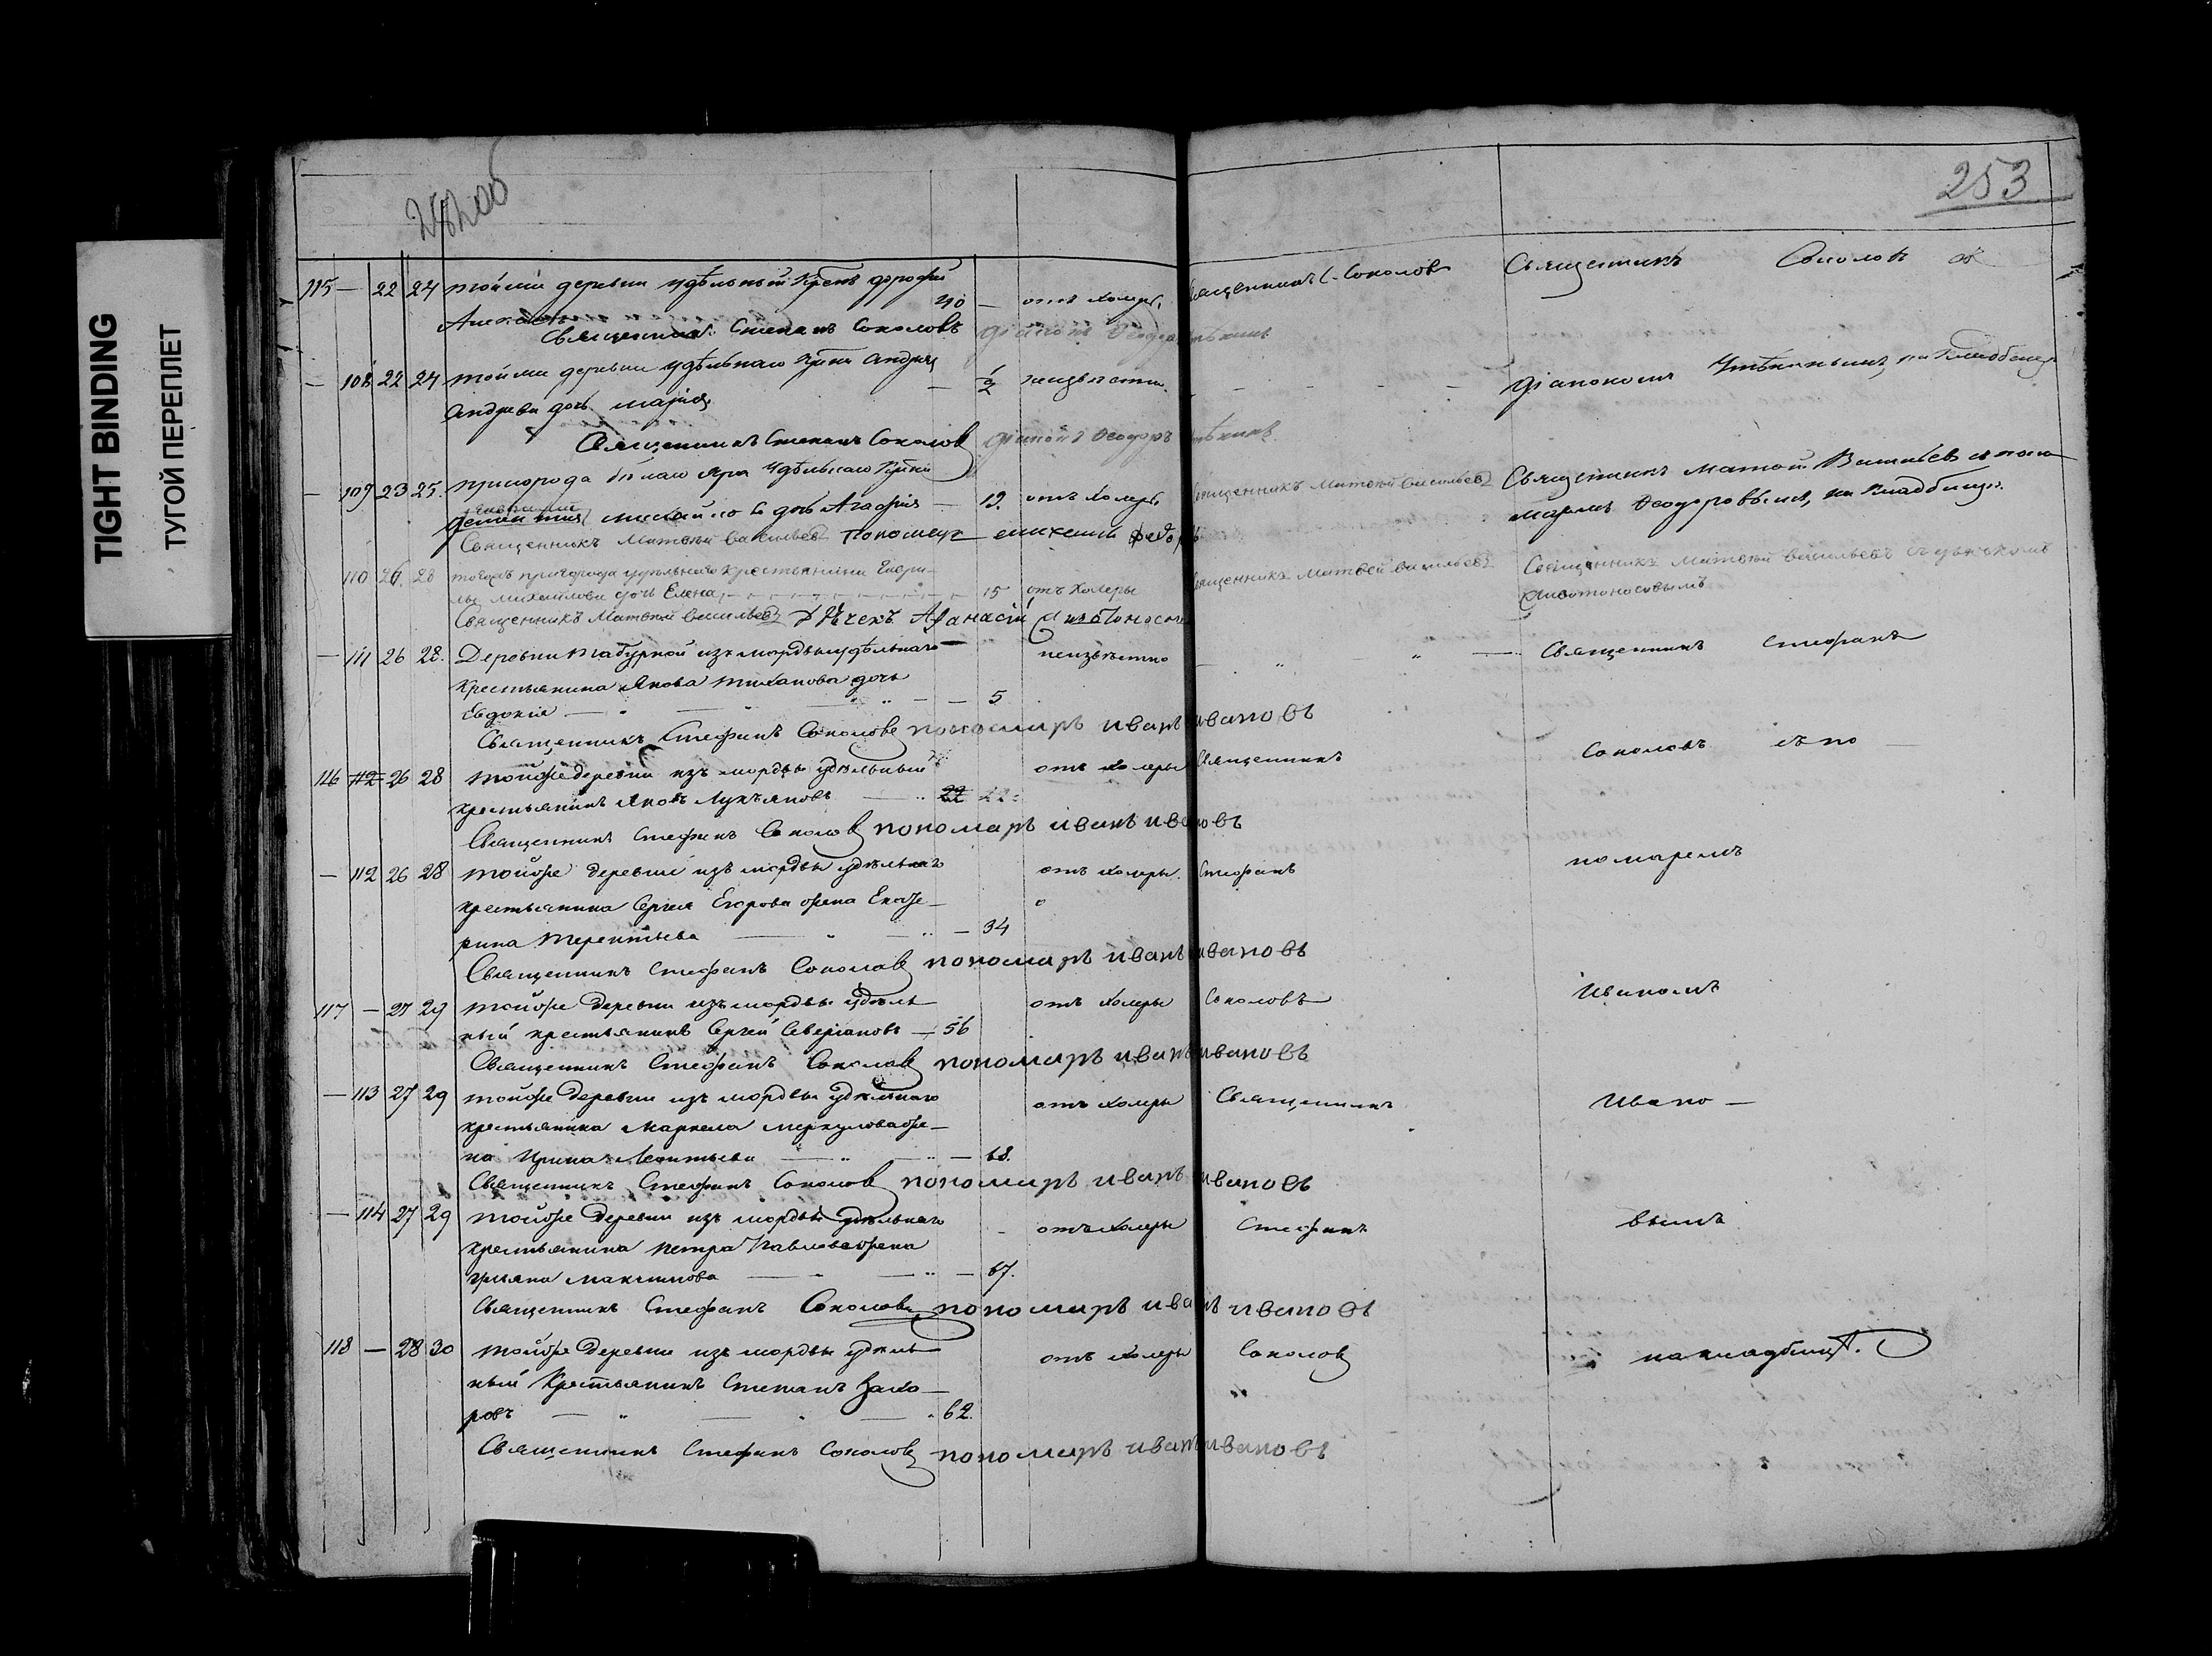 TIGHT BINDING
ТУГОЙ ПЕРЕПЛЕТ
253
115 — 22 24 тойже деревни удѣльный Крест. Дорофей
40 — отъ холеры. Священникъ С. Соколовъ Священникъ Соколовъ съ
Священникъ Степанъ Соколовъ Діаконъ Ѳеодоръ
— 108 22 24 тойже деревни удѣльнаго Крест. Андрея
Андреева дочь Марія — 1/2 неизвѣстно Діакономъ на кладбищѣ
Священникъ Степанъ Соколовъ Діаконъ Ѳеодоръ
— 109 23 25. пригорода Бѣлаго Яра Удѣльнаго Крест.
Михайлова дочь Агафія — 19. отъ холеры Священникъ Матвей Васильевъ Священникъ Матвей Васильевъ съ поно-
маремъ Ѳеодоровымъ, на кладбищѣ.
Священникъ Матвей Васильевъ Пономарь Федоровъ
110 26. 28 тогожъ пригорода удѣльнаго крестьянина Гаври-
лы Михайлова дочь Елена, 15 отъ холеры Священникъ Матвей Васильевъ Священникъ Матвей Васильевъ съ дьячкомъ
Священникъ Матвей Васильевъ Дьячекъ Афанасій
— 111 26 28. Деревни из мордвы удѣльнаго — неизвѣстно Священникъ Стефанъ
крестьянина Якова дочь
Евдокія — 5
Священникъ Стефанъ Соколовъ пономарь иванъ ивановъ
116 112 26 28 тойже деревни изъ мордвы удѣльный отъ холеры Священникъ Соколовъ съ по-
крестьянинъ Яковъ Лукьяновъ — 22 22
Священникъ Стефанъ Соколовъ пономарь иванъ ивановъ
— 112 26 28 тойже деревни изъ мордвы удѣльнаго отъ холеры. Стефанъ номаремъ
крестьянина Сергея Егорова жена Екате-
рина Терентьева — 34
Священникъ Стефанъ Соколовъ пономарь иванъ ивановъ
117 — 27 29 тойже деревни изъ мордвы удѣль- отъ холеры Соколовъ Иваномъ
ный крестьянинъ Сергей Северіановъ — 56
Священникъ Стефанъ Соколовъ пономарь иванъ ивановъ
— 113 27 29 тойже деревни изъ мордвы удѣльнаго отъ холеры Священникъ Ивано-
крестьянина Маркела Меркулова же-
на Ирина Леонтьева — 68.
Священникъ Стефанъ Соколовъ пономарь иванъ ивановъ
— 114 27 29 тойже деревни изъ мордвы удѣльнаго отъ холеры Стефанъ вымъ
крестьянина Петра Павлова жена
Максимова — 67.
Священникъ Стефанъ Соколовъ пономарь иванъ ивановъ
118 — 28 30 тойже деревни изъ мордвы удѣль- отъ холеры Соколовъ на кладбищѣ.
ный Крестьянинъ Степанъ Заха-
ровъ — 62.
Священникъ Стефанъ Соколовъ пономарь иванъ ивановъ